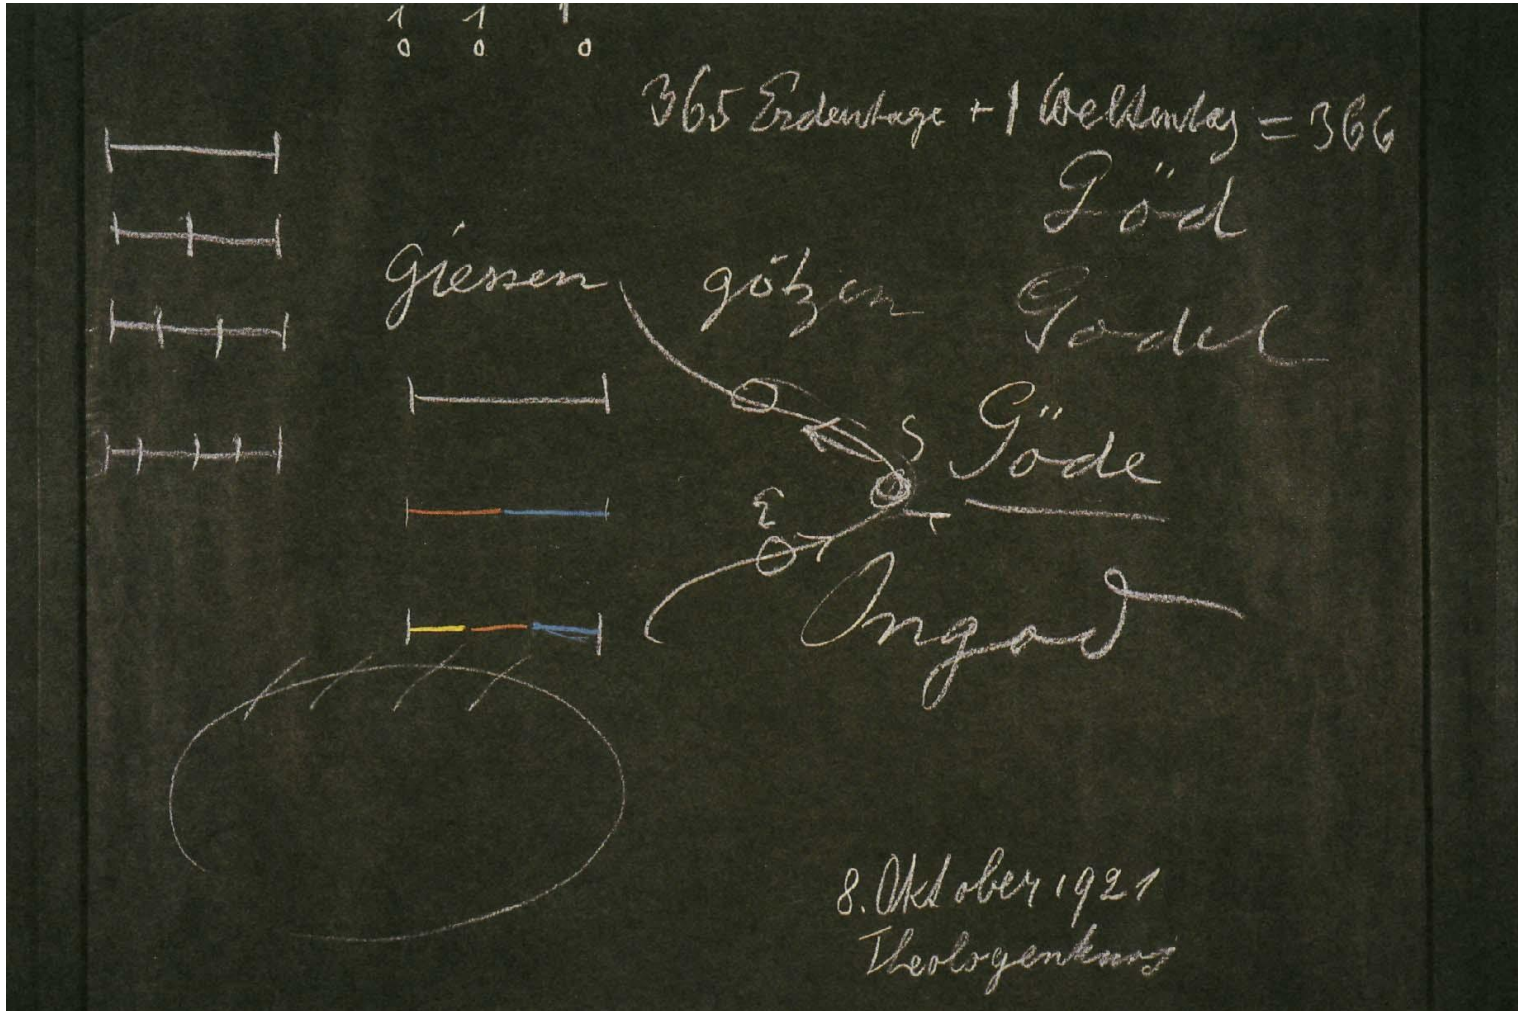 1 1 1
0 0 0
365 Erdentage + 1 Weltentag = 366
Göd
giessen götzen Godel
S Göde
E
Ongod
8. Oktober 1921
Theologenkurs